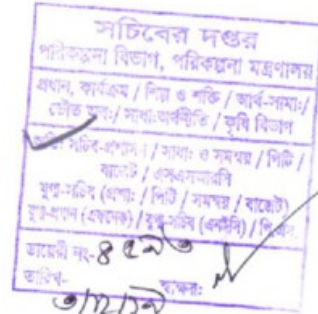 সচিবের দপ্তর
পরিকল্পনা বিভাগ, পরিকল্পনা মন্ত্রণালয়
প্রধান, কার্যক্রম / শিল্প ও শক্তি / আর্থ-সামাঃ/
ভৌত অবঃ/ সাধাঃঅর্থনীতি / কৃষি বিভাগ
সচিব-প্রশাসন / সাধাঃ ও সমন্বয় / পিটি /
বাজেট / এসএসআরসি
যুগ্ম-সচিব (প্রশাঃ / পিটি / সমন্বয় / বাজেট)
যুগ্ম-প্রধান (এমদেক) / যুগ্ম-সচিব (এনইসি) / পি.এস.
ডায়েরী নং-
তারিখ- স্বাক্ষর: